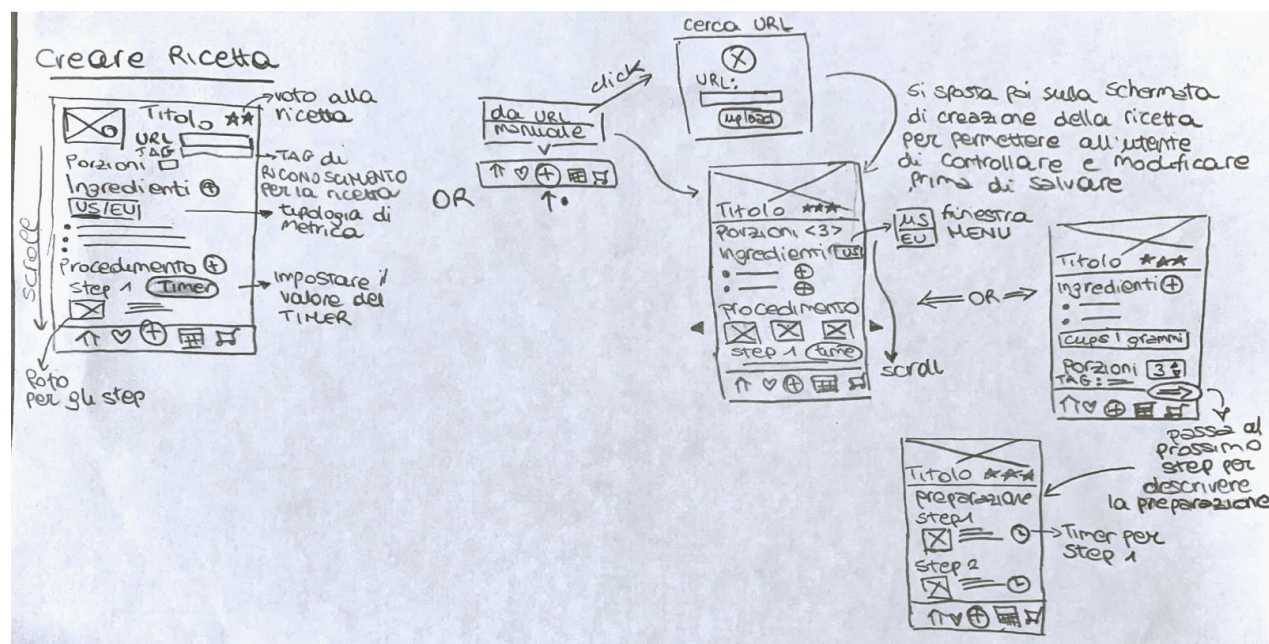 Creare Ricetta
Titolo
URL
TAG
Porzioni
Ingredienti
US/EU
Procedimento
step 1 Timer
scroll
Foto
per gli step
voto alla
ricetta
TAG di
RICONOSCIMENTO
per la ricetta
tipologia di
metrica
impostare il
valore del
TIMER
OR
da URL
manuale
click
cerca URL
URL:
upload
si sposta poi sulla schermata
di creazione della ricetta
per permettere all'utente
di controllare e modificare
prima di salvare
Titolo
Porzioni <3>
ingredienti US
procedimento
step 1 time
US
EU
finestra
MENU
scroll
OR
Titolo
ingredienti
cups | grammi
Porzioni 3
TAG:
passa al
prossimo
step per
descrivere
la preparazione
Titolo
preparazione
step1
step 2
Timer per
step 1